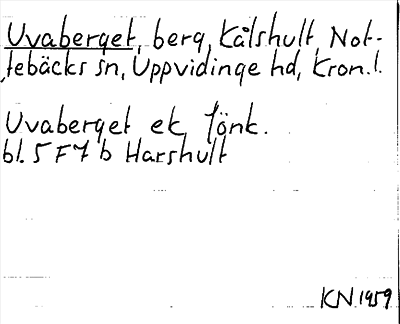 Uvaberget, berg, Kålshult, Not-
tebäcks sn, Uppvidinge hd, Kron. l.
Uvaberget ek, Jönk.
bl. 5 F 7 b Harshult
KN 1959